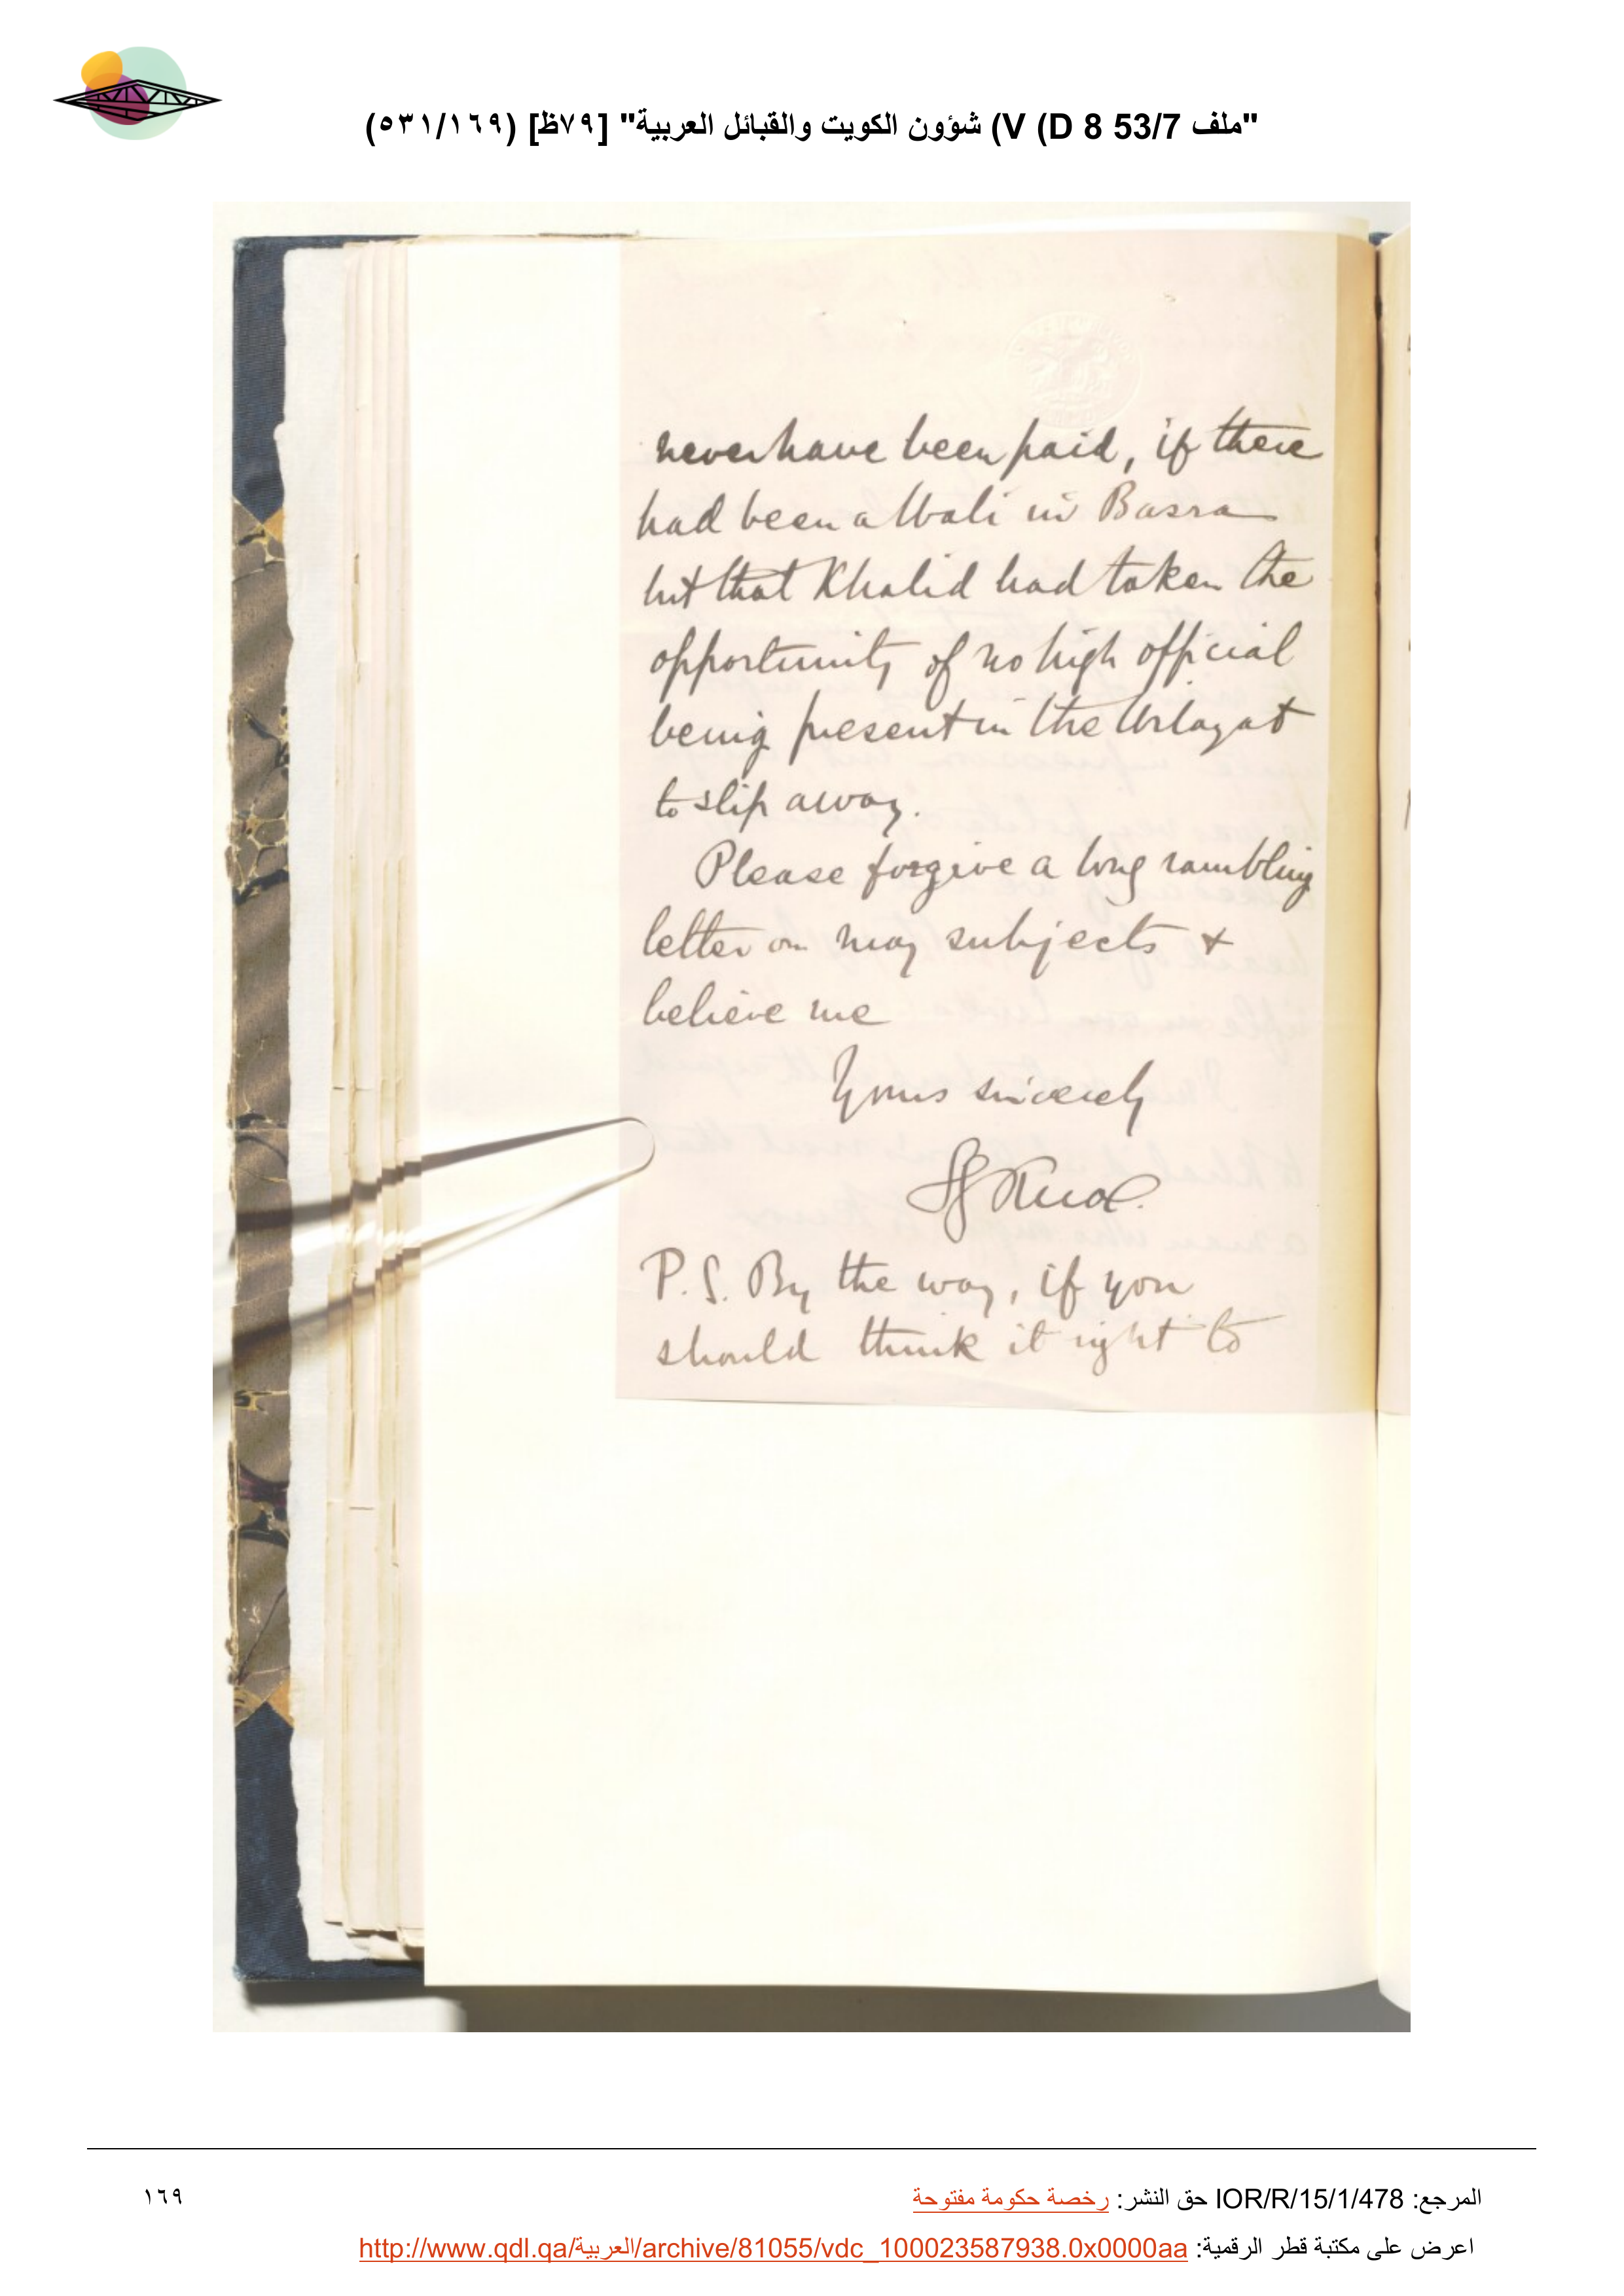 "ملف 53/7 D 8 (V) شؤون الكويت والقبائل العربية" [٧٩ظ] (٥٣١/١٦٩)
never have been paid, if there
had been a Wali in Basra
but that Khalid had taken the
opportunity of no high official
being present in the Wilayat
to slip away.
Please forgive a long rambling
letter on many subjects &
believe me
Yours sincerely
SGKnox.
P.S. By the way, if you
should think it right to
المرجع: IOR/R/15/1/478 حق النشر: رخصة حكومة مفتوحة
١٦٩
اعرض على مكتبة قطر الرقمية: http://www.qdl.qa/العربية/archive/81055/vdc_100023587938.0x0000aa